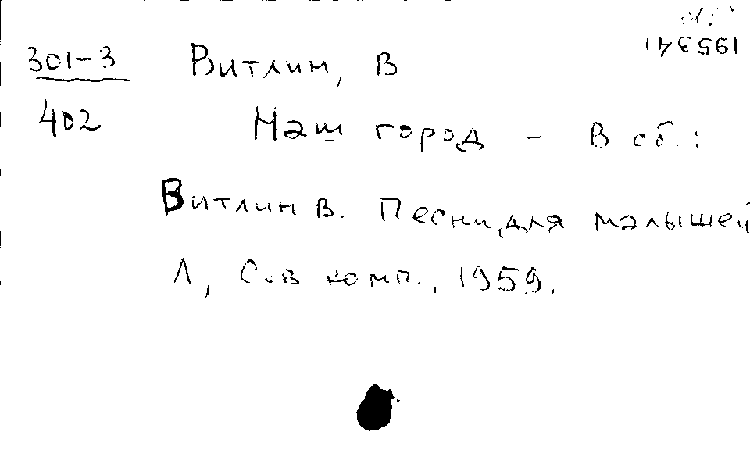 195341
301-3 Витлин, В
402 Наш город - В сб.:
Витлин В. Песни для малышей
Л, Сов комп., 1959.